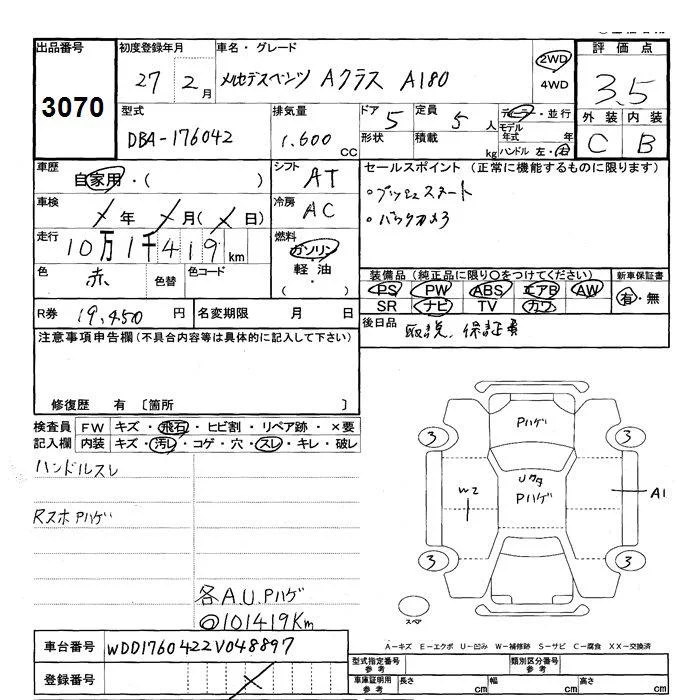 出品番号
3070
初度登録年月
27 2月
車名・グレード
メルセデスベンツ Aクラス A180
2WD
4WD
評価点
3.5
外装 内装
C B
型式
DBA-176042
排気量
1.600 CC
ドア 5
形状
定員 5 人
積載 kg
ディーラー・並行
モデル年式 年
ハンドル 左・右
車歴
自家用・( )
シフト
AT
車検
×年 ×月(×日)
冷房
AC
走行
10万1千419km
燃料
ガソリン
軽油
・( )
色
赤
色替
色コード
R券 19,450円
名変期限 月 日
セールスポイント(正常に機能するものに限ります)
・プッシュスタート
・バックカメラ
装備品(純正品に限り○をつけてください)
PS PW ABS エアB AW
SR ナビ TV カワ
新車保証書
有・無
後日品
取説、保証書
注意事項申告欄(不具合内容等は具体的に記入して下さい)
修復歴 有 〔箇所 〕
検査員記入欄
FW キズ・飛石・ヒビ割・リペア跡・×要
内装 キズ・汚レ・コゲ・穴・スレ・キレ・破レ
ハンドルスレ
RスポPハゲ
各A.U.Pハゲ
@101419Km
Pハゲ
3 3
UクタPハゲ
W2
A1
3 3
スペア
A-キズ E-エクボ U-凹み W-補修跡 S-サビ C-腐食 XX-交換済
車台番号 WDD1760422V048897
登録番号 ×
型式指定番号 参考
類別区分番号 参考
車庫証明用 参考
長さ cm
幅 cm
高さ cm